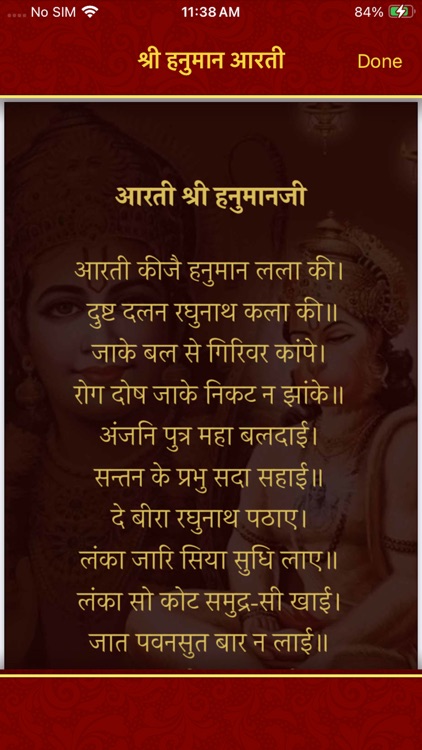 No SIM 11:38 AM 84%
श्री हनुमान आरती Done
आरती श्री हनुमानजी
आरती कीजै हनुमान लला की।
दुष्ट दलन रघुनाथ कला की॥
जाके बल से गिरिवर कांपे।
रोग दोष जाके निकट न झांके॥
अंजनि पुत्र महा बलदाई।
सन्तन के प्रभु सदा सहाई॥
दे बीरा रघुनाथ पठाए।
लंका जारि सिया सुधि लाए॥
लंका सो कोट समुद्र-सी खाई।
जात पवनसुत बार न लाई॥